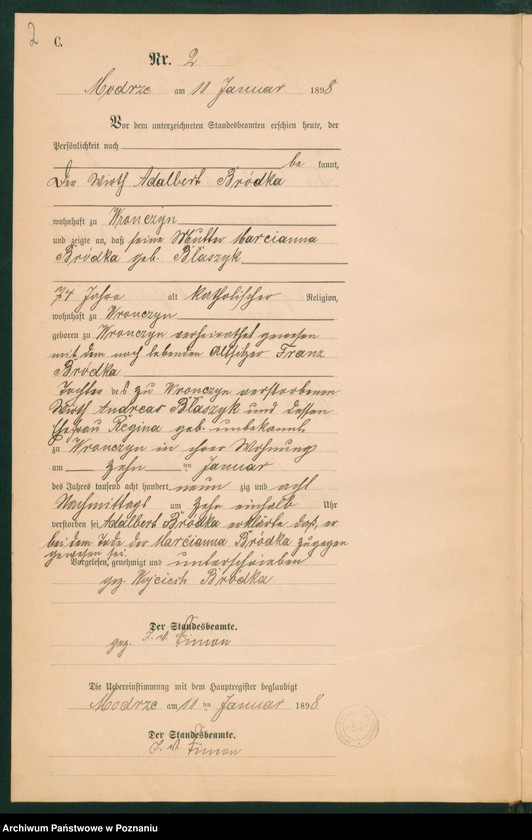 2
C.
Nr. 2
Modrze am 11 Januar 1898
Vor dem unterzeichneten Standesbeamten erschien heute, der
Persönlichkeit nach
be kannt,
Der Wirth Adalbert Bródka
wohnhaft zu Wronczyn
und zeigte an, daß seine Mutter Marcianna
Bródka geb. Blaszyk
74 Jahre alt katholischer Religion,
wohnhaft zu Wronczyn
geboren zu Wronczyn verheirathet gewesen
mit dem noch lebenden Altsitzer Franz
Bródka
Tochter des zu Wronczyn verstorbenen
Wirth Andreas Blaszyk und dessen
Ehefrau Regina geb. unbekannt
zu Wronczyn in ihrer Wohnung
am zehn ten Januar
des Jahres tausend acht hundert neun zig und acht
Nachmittags um zehn einhalb Uhr
verstorben sei, Adalbert Bródka erklärte daß, er
bei dem Tode der Marcianna Bródka zugegen
gewesen sei.
Vorgelesen, genehmigt und unterschrieben
gez Wojciech Bródka
Der Standesbeamte.
gez. Simon
Die Uebereinstimmung mit dem Hauptregister beglaubigt
Modrze am 11 ten Januar 1898
Der Standesbeamte.
Simon
Archiwum Państwowe w Poznaniu